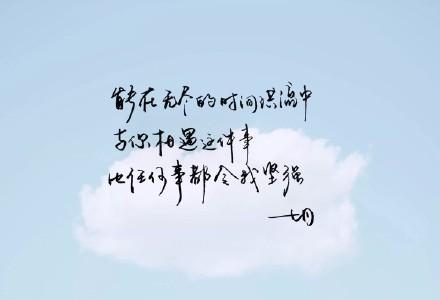 能在无尽的时间洪流中
与你相遇这件事
比任何事都令我坚强
—七月